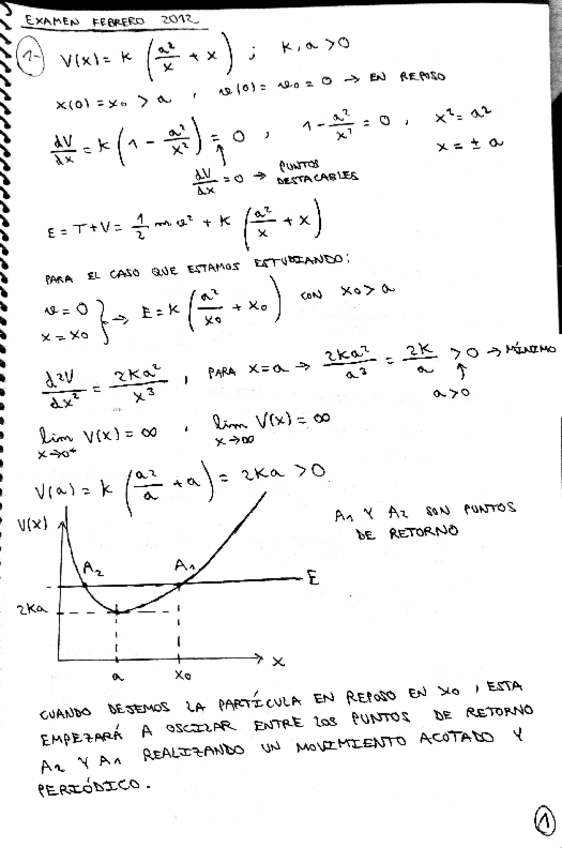 EXAMEN FEBRERO 2012
1- V(x) = K (a²/x + x) ; K, a > 0
x(0) = x₀ > a , v(0) = v₀ = 0 → EN REPOSO
dV/dx = K (1 - a²/x²) = 0 , 1 - a²/x² = 0 , x² = a²
x = ± a
dV/dx = 0 → PUNTOS DESTACABLES
E = T + V = 1/2 m v² + K (a²/x + x)
PARA EL CASO QUE ESTAMOS ESTUDIANDO:
v = 0
x = x₀ } → E = K (a²/x₀ + x₀) CON x₀ > a
d²V/dx² = 2Ka²/x³ , PARA x = a → 2Ka²/a³ = 2K/a > 0 → MÍNIMO
a > 0
lim x→0⁺ V(x) = ∞ , lim x→∞ V(x) = ∞
V(a) = K (a²/a + a) = 2Ka > 0
A₁ Y A₂ SON PUNTOS
DE RETORNO
V(x)
A₂ A₁
E
2Ka
a x₀ x
CUANDO DEJEMOS LA PARTÍCULA EN REPOSO EN x₀, ESTA
EMPEZARÁ A OSCILAR ENTRE LOS PUNTOS DE RETORNO
A₂ Y A₁ REALIZANDO UN MOVIMIENTO ACOTADO Y
PERIÓDICO.
1